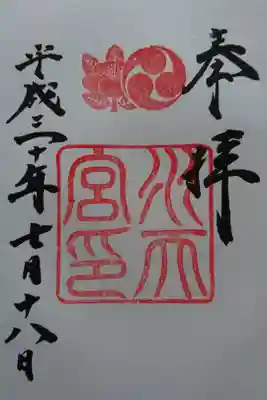 奉拝
水天宮印
平成三十年七月十八日